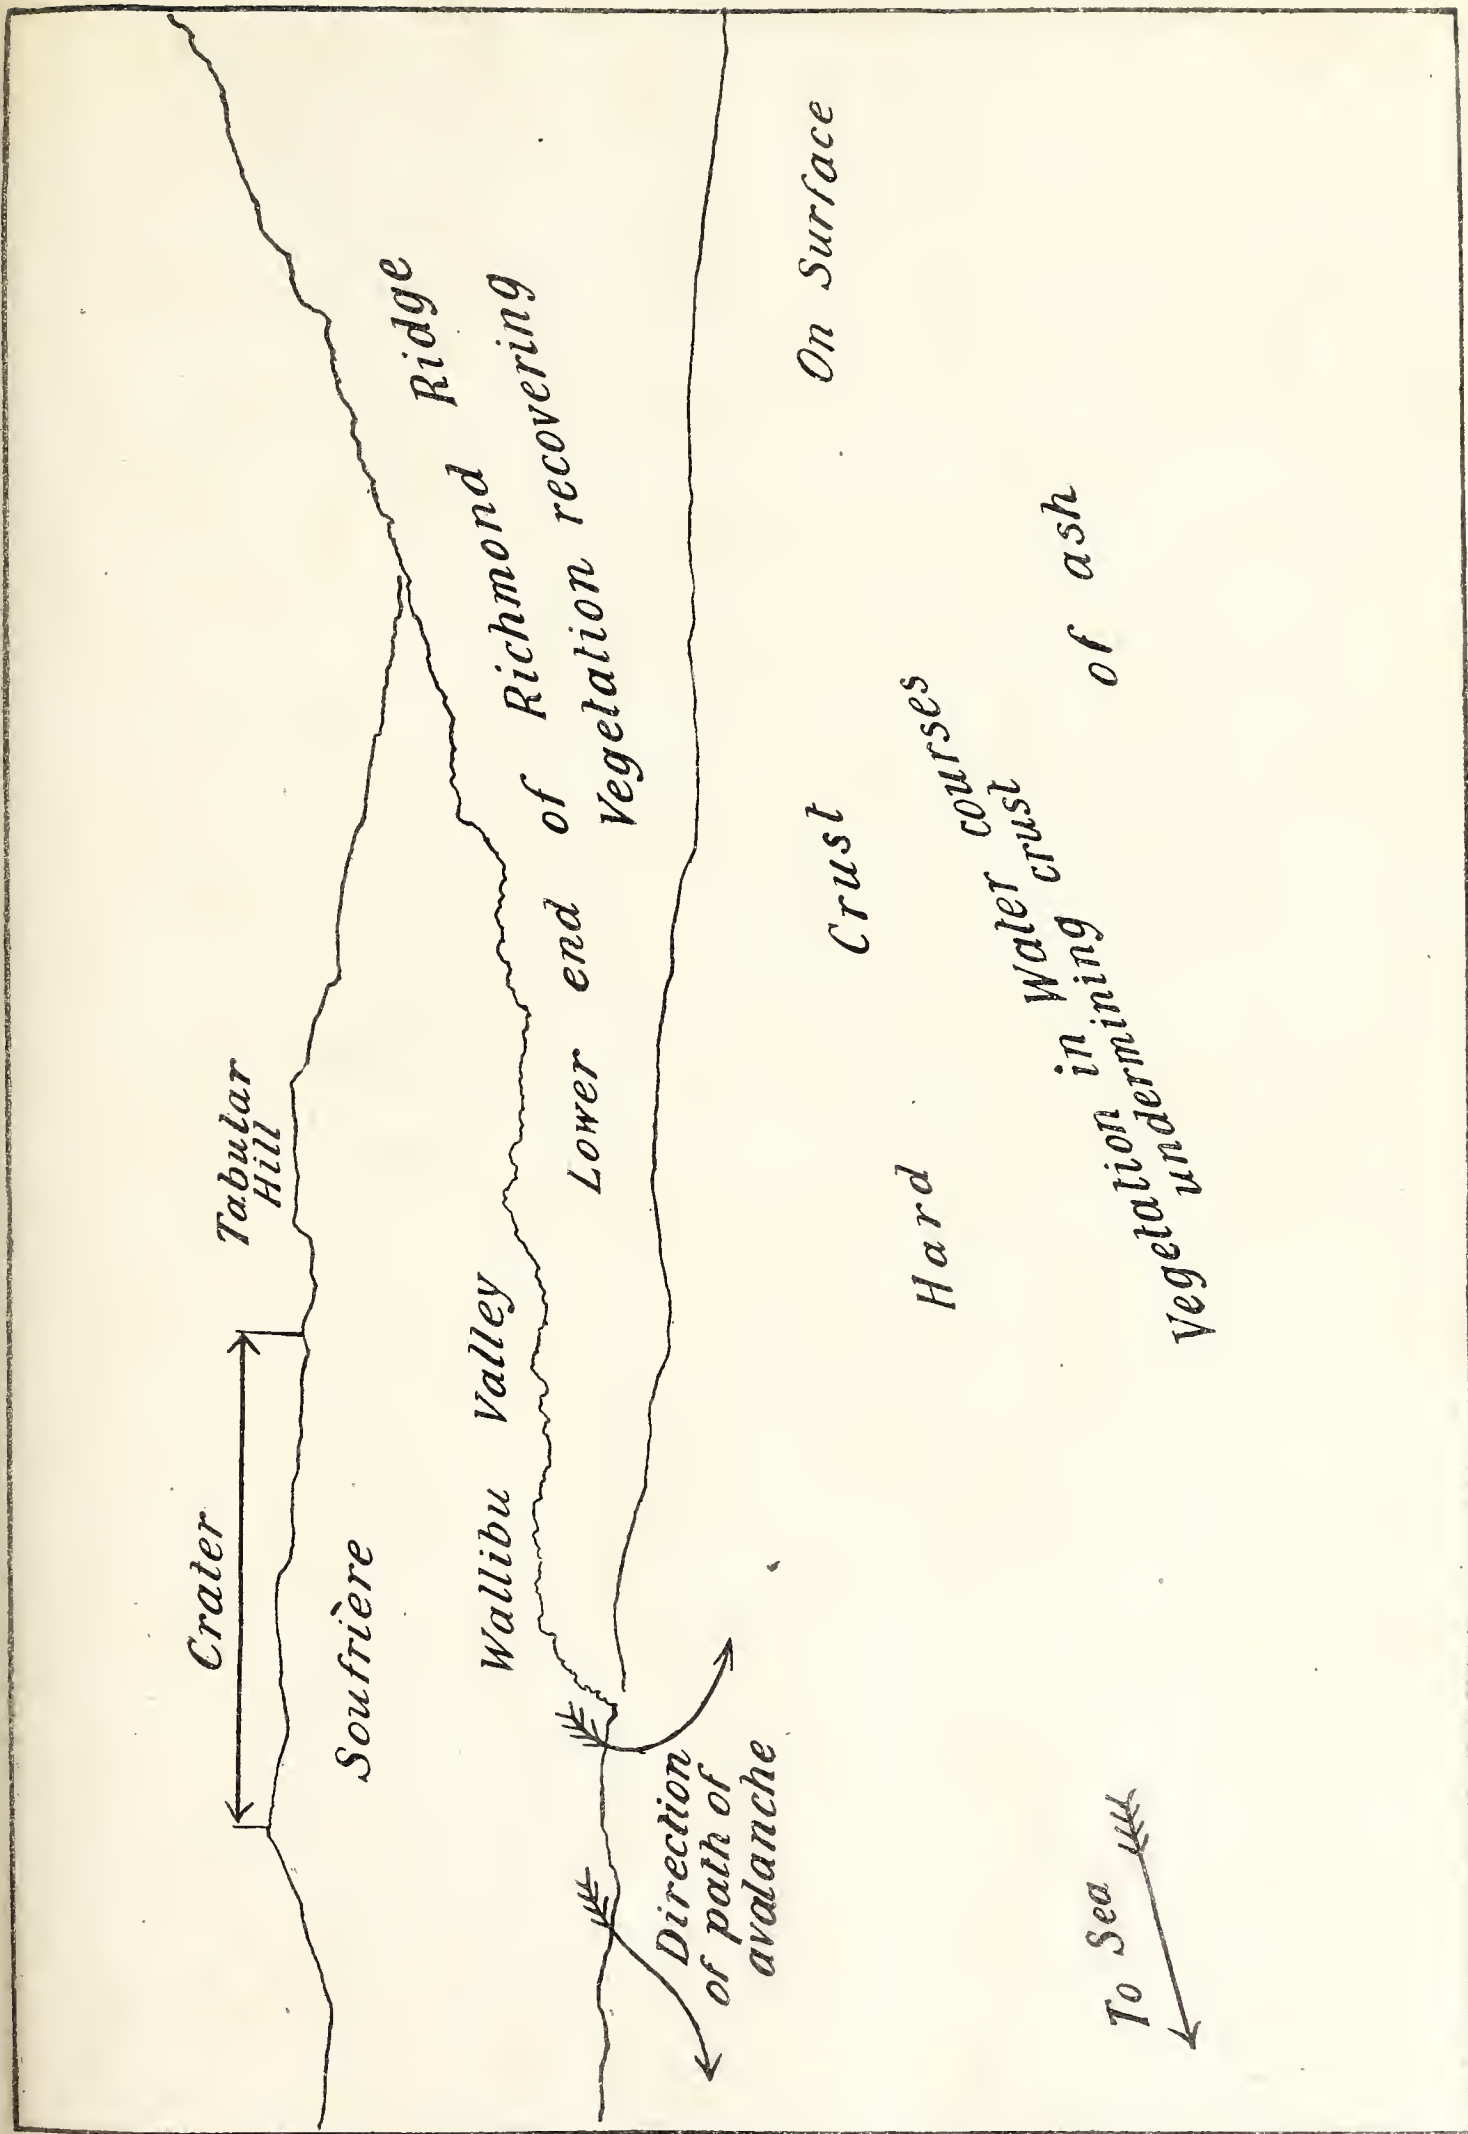 Crater
Tabular
Hill
Soufrière
Wallibu Valley
Lower end of Richmond Ridge
Vegetation recovering
Direction
of path of
avalanche
Hard Crust On Surface
Vegetation in Water courses
undermining crust
of ash
To Sea